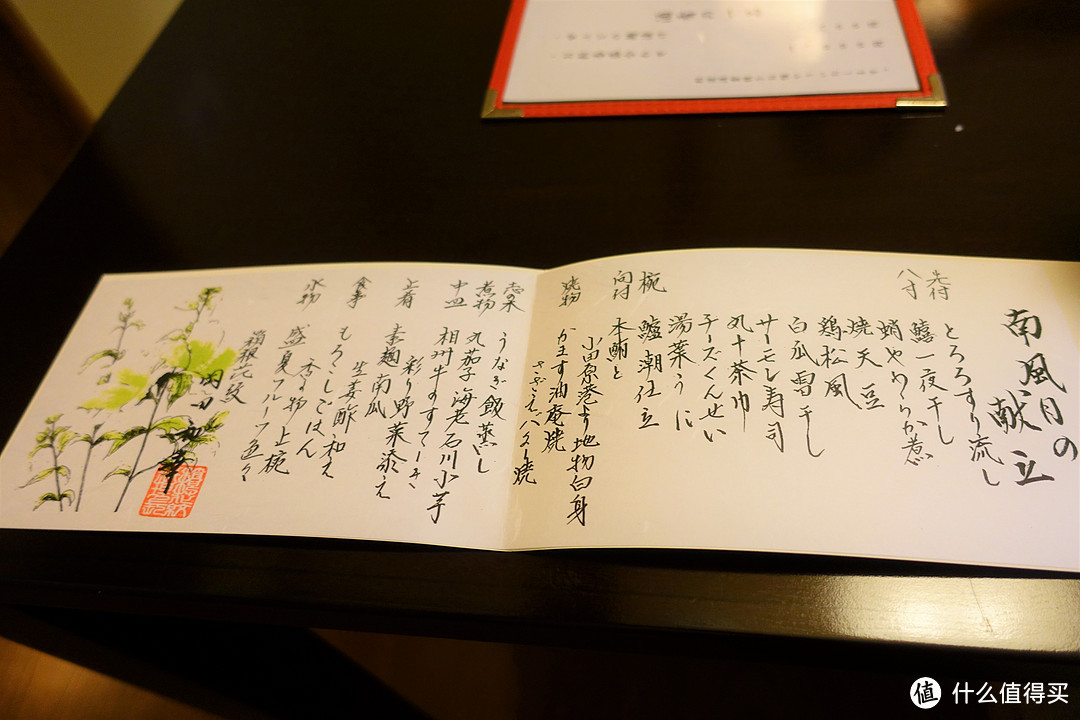 南風月の献立
先付 とろろすり流し
八寸 鱚一夜干し
蛸やわらか煮
焼天豆
鶏松風
白瓜雷干し
サーモン寿司
丸十茶巾
チーズくんせい
湯葉うに
椀 鱸潮仕立
向付 本鮪と
小田原港より地物白身
焼物 かます油庵焼
さざえバター焼
志の木 うなぎ飯蒸し
煮物 丸茄子 海老 石川小芋
中皿 相州牛のすてーき
彩り野菜添え
上肴 素麺南瓜
生姜酢和え
食事 もろこしごはん
香の物 上椀
水物 盛夏フルーツ色々
箱根花紋
什么值得买